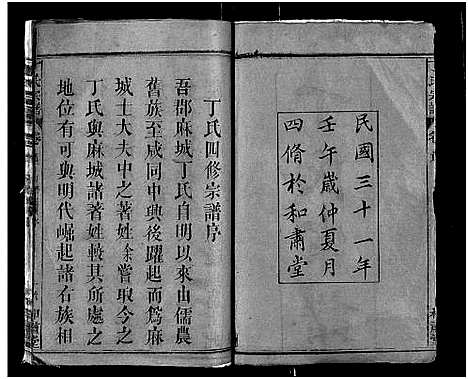 民國三十一年
壬午歲仲夏月
四脩於和肅堂
丁氏四修宗譜序
吾郡麻城丁氏自明以來由儒農
舊族至咸同中興後躍起而為麻
城士大夫中之著姓余嘗取今之
丁氏與麻城諸著姓較其所處之
地位有可與明代崛起諸右族相